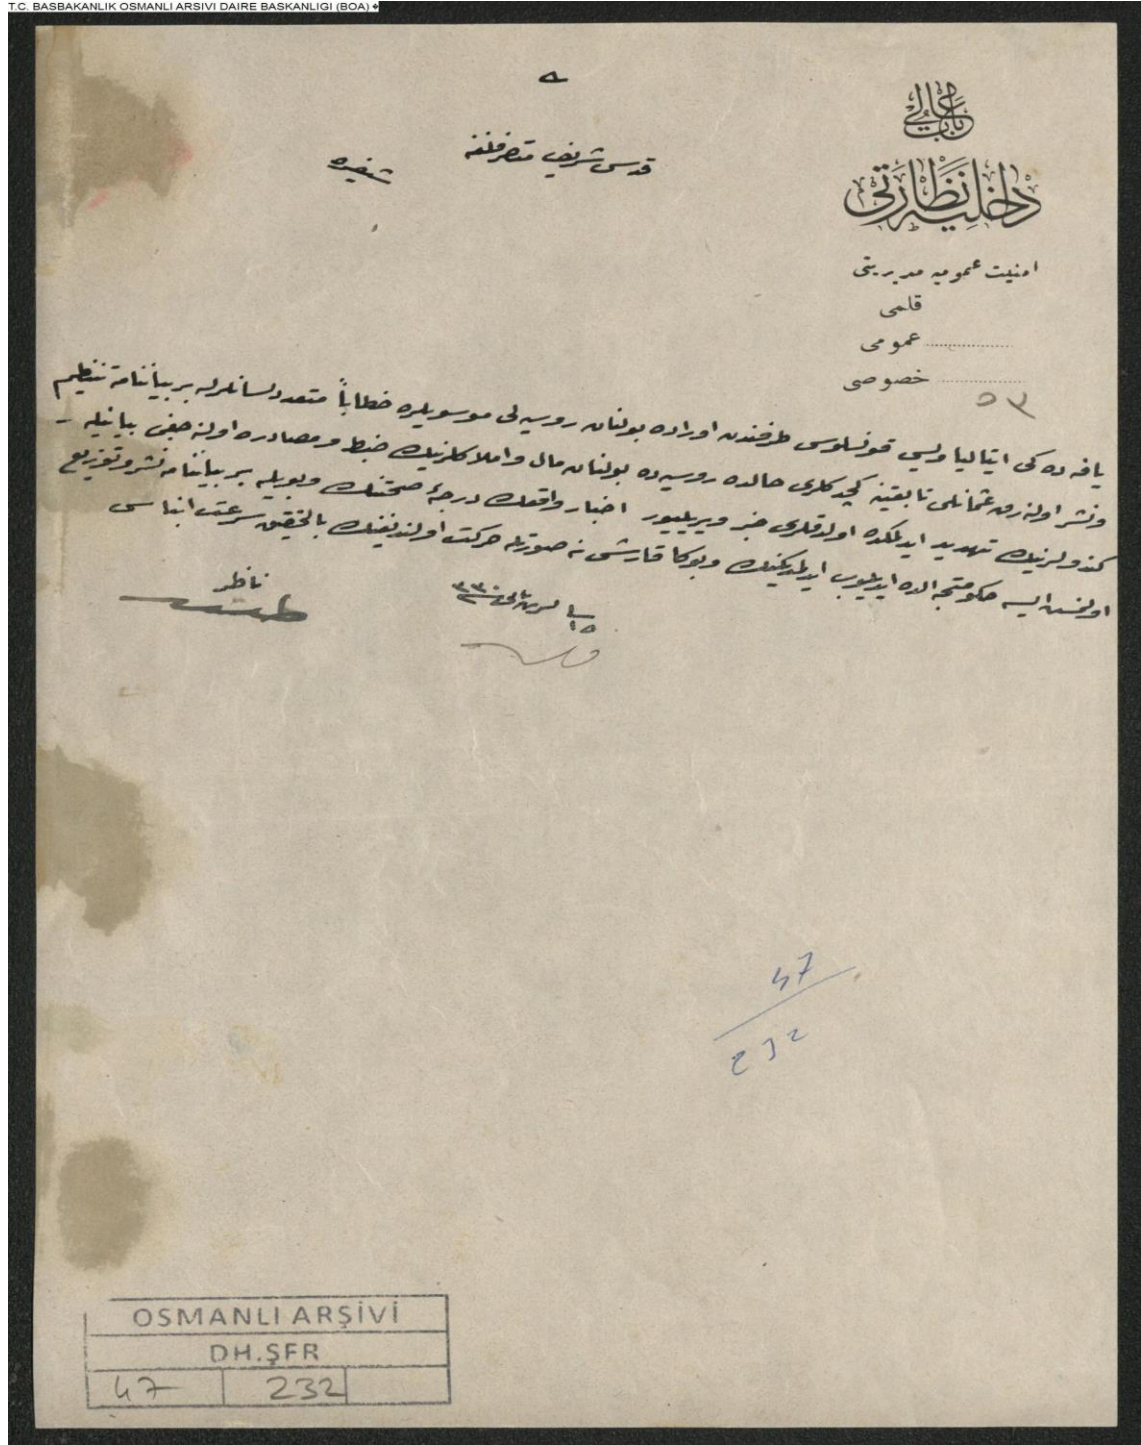 T.C. BASBAKANLIK OSMANLI ARSIVI DAIRE BASKANLIGI (BOA)
باب عالی
داخلیه نظارتی
امنیت عمومیه مدیریتی
قلمی
عمومی
خصوصی
٥٣
قدس شریف متصرفلغنه
شفره
یافه ده کی ایتالیا ویس قونسلوسی طرفندن اوراده بولنان روسیه لی موسویلره خطاباً متعدد لسانلرله بر بیاننامه تنظیم
ونشر اولنه رق عثمانلی تابعیتنه کچدکلری حالده روسیه ده بولنان مال واملاکلرینك ضبط ومصادره اولنه جغی بیانیله
کندولرینك تهدید ایدلمکده اولدقلری خبر ویریلیور اخبار واقعك درجهٔ صحتنك وبویله بر بیاننامه نشر وتوزیع
اولنمش ایسه حکومتجه الده ایدیلوب ایدلمدیکنك وبوکا قارشی نه صورتله حرکت اولندیغنك بالتحقیق سرعت انباسی
ناظر
طلعت
47
232
OSMANLI ARŞİVİ
DH.ŞFR
47 232